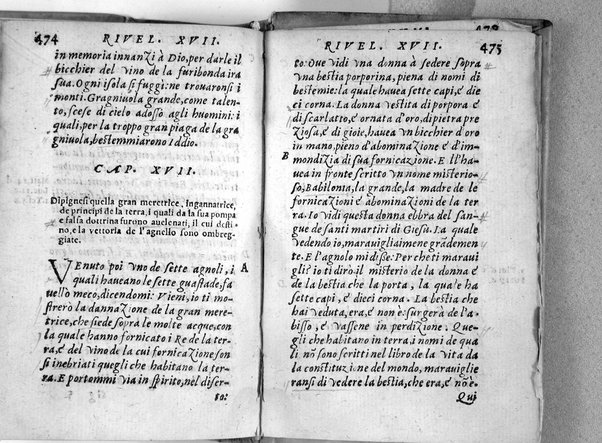 474 RIVEL. XVII.
in memoria innanzi à Dio, per darle il
bicchier del vino de la furibonda ira
sua. Ogni isola si fuggi: ne trouaronsi i
monti. Gragniuola grande, come talen-
to, scese di cielo adosso agli huomini: i
quali, per la troppo gran piaga de la gra
gniuola, bestemmiarono Iddio.
CAP. XVII.
Dipignesi quella gran meretrice, ingannatrice,
de principi de la terra, i quali da la sua pompa
e falsa dottrina furono auelenati, il cui desti-
no, e la vettoria de l'agnello sono ombreg-
giate.
VEnuto poi vno de sette agnoli, i A
quali haueano le sette guastade, fa
uellò meco, dicendomi: Vieni, io ti mo-
strerò la dannazione de la gran mere-
trice, che siede sopra le molte acque, con
la quale hanno fornicato i Re de la ter-
ra, e del vino de la cui fornicazione son
si inebriati quegli che habitano la ter-
ra. E portommi via in spirito, nel diser-
to:
RIVEL. XVII. 475
to: Oue vidi vna donna à sedere sopra
vna bestia porporina, piena di nomi di
bestemie: la quale hauea sette capi, e die
ci corna. La donna vestita di porpora e
di scarlatto, e ornata d'oro, di pietra pre
ziosa, e di gioie, hauea vn bicchier d'oro
in mano, pieno d'abominazione e d'im-
B mondizia di sua fornicazione. E l'ha-
uea in fronte scritto vn nome misterio-
so, Babilonia, la grande, la madre de le
fornicazioni e abominazioni de la ter
ra. Io vidi questa donna ebbra del san-
gue de santi martiri di Giesù. La quale
vedendo io, marauigliaime grãdemen-
te. E l'agnolo mi disse: Perche ti maraui
gli? io ti dirò il misterio de la donna e
de la bestia che la porta, la quale ha
sette capi, e dieci corna. La bestia che
hai veduta, era, e non è: surgerà de l'a-
bisso, e vassene in perdizione. Que-
gli che habitano in terra, i nomi de qua
li nõ sono scritti nel libro de la vita da
la constituzione del mondo, marauiglie
ransi di vedere la bestia, che era, e nõ e.
Qui